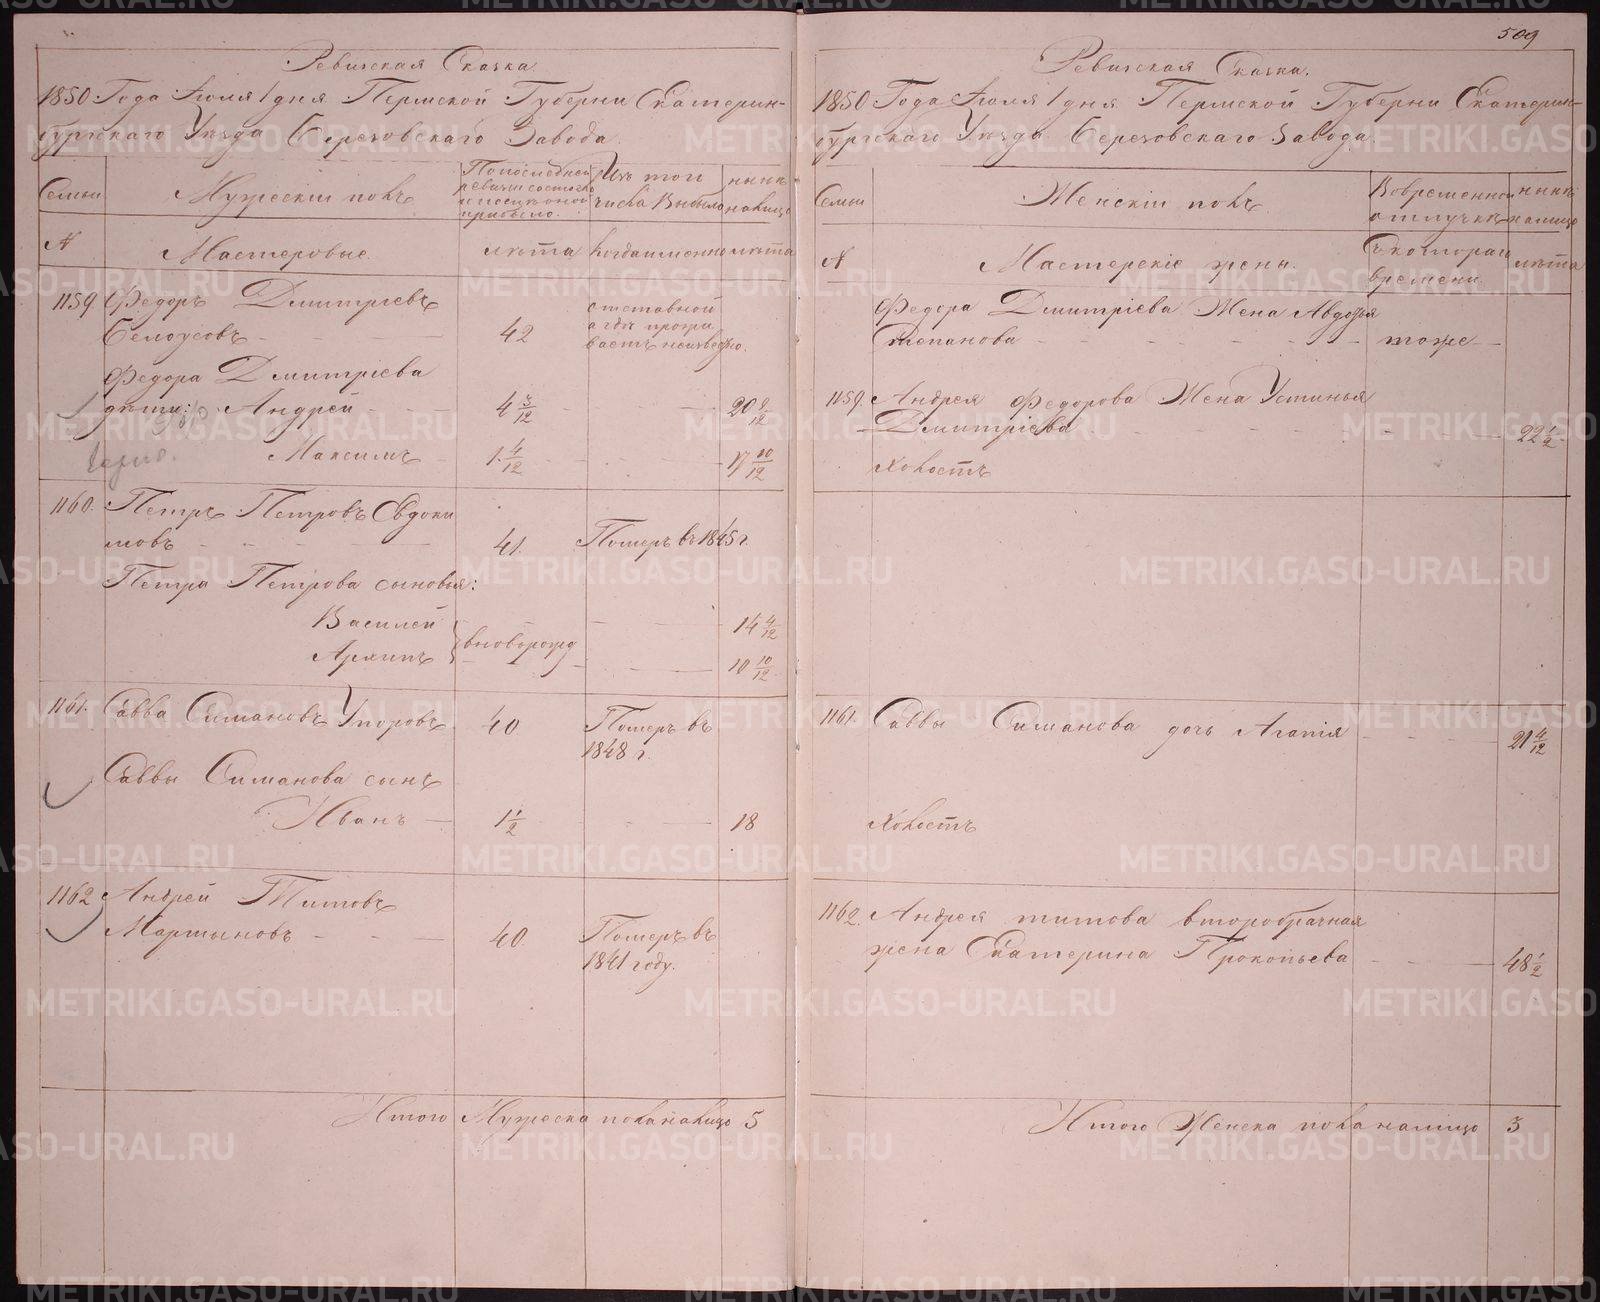 509
Ревизская Сказка.
1850 Года Июля 1 дня Пермской Губерни Екатерин-
бургскаго Уѣзда Березовскаго Завода.
Семьи
Мужескій полъ
По послѣдней
ревизіи состояло
и послѣ оной
прибыло.
Изъ того
числа Выбыло
нынѣ
налицо
№
Мастеровые.
лѣта
когда именно
лѣта
1159. Федоръ Дмитріевъ
Белоусовъ
42
отставной
а гдѣ прожи
ваетъ неизвестно.
Федора Дмитріева
дѣти: Андрей
4 3/12
20 9/12
Максимъ
1 4/12
17 10/12
1160. Петръ Петровъ Евдоки
мовъ
41.
Померъ въ 1845 г.
Петра Петрова сыновья:
Василей
14 4/12
вновьрожд
Архипъ
10 10/12
1161. Савва Симановъ Упоровъ
40
Померъ въ
1848 г.
Саввы Симанова сынъ
Иванъ
1 1/2
18
1162 Андрей Титовъ
Мартыновъ
40.
Померъ въ
1841 году.
Итого Мужеска пола налицо 5
Ревизская Сказка.
1850 Года Июля 1 дня Пермской Губерни Екатерин-
бургскаго Уѣзда Березовскаго Завода
Семьи
Женскій полъ.
Вовременной
отлучкѣ
нынѣ
налицо
№
Мастерскіе жены.
Съ котораго
времени
лѣта
Федора Дмитріева Жена Авдотья
Степанова
тоже
1159. Андрея Федорова Жена Устинья
Дмитріева
22 1/2
Холостъ
1161. Саввы Симанова дочь Агапія
21 4/12
Холостъ
1162. Андрея титова второбрачная
жена Екатерина Прокопьева
48 1/2
Итого Женска пола налицо 3
METRIKI.GASO-URAL.RU